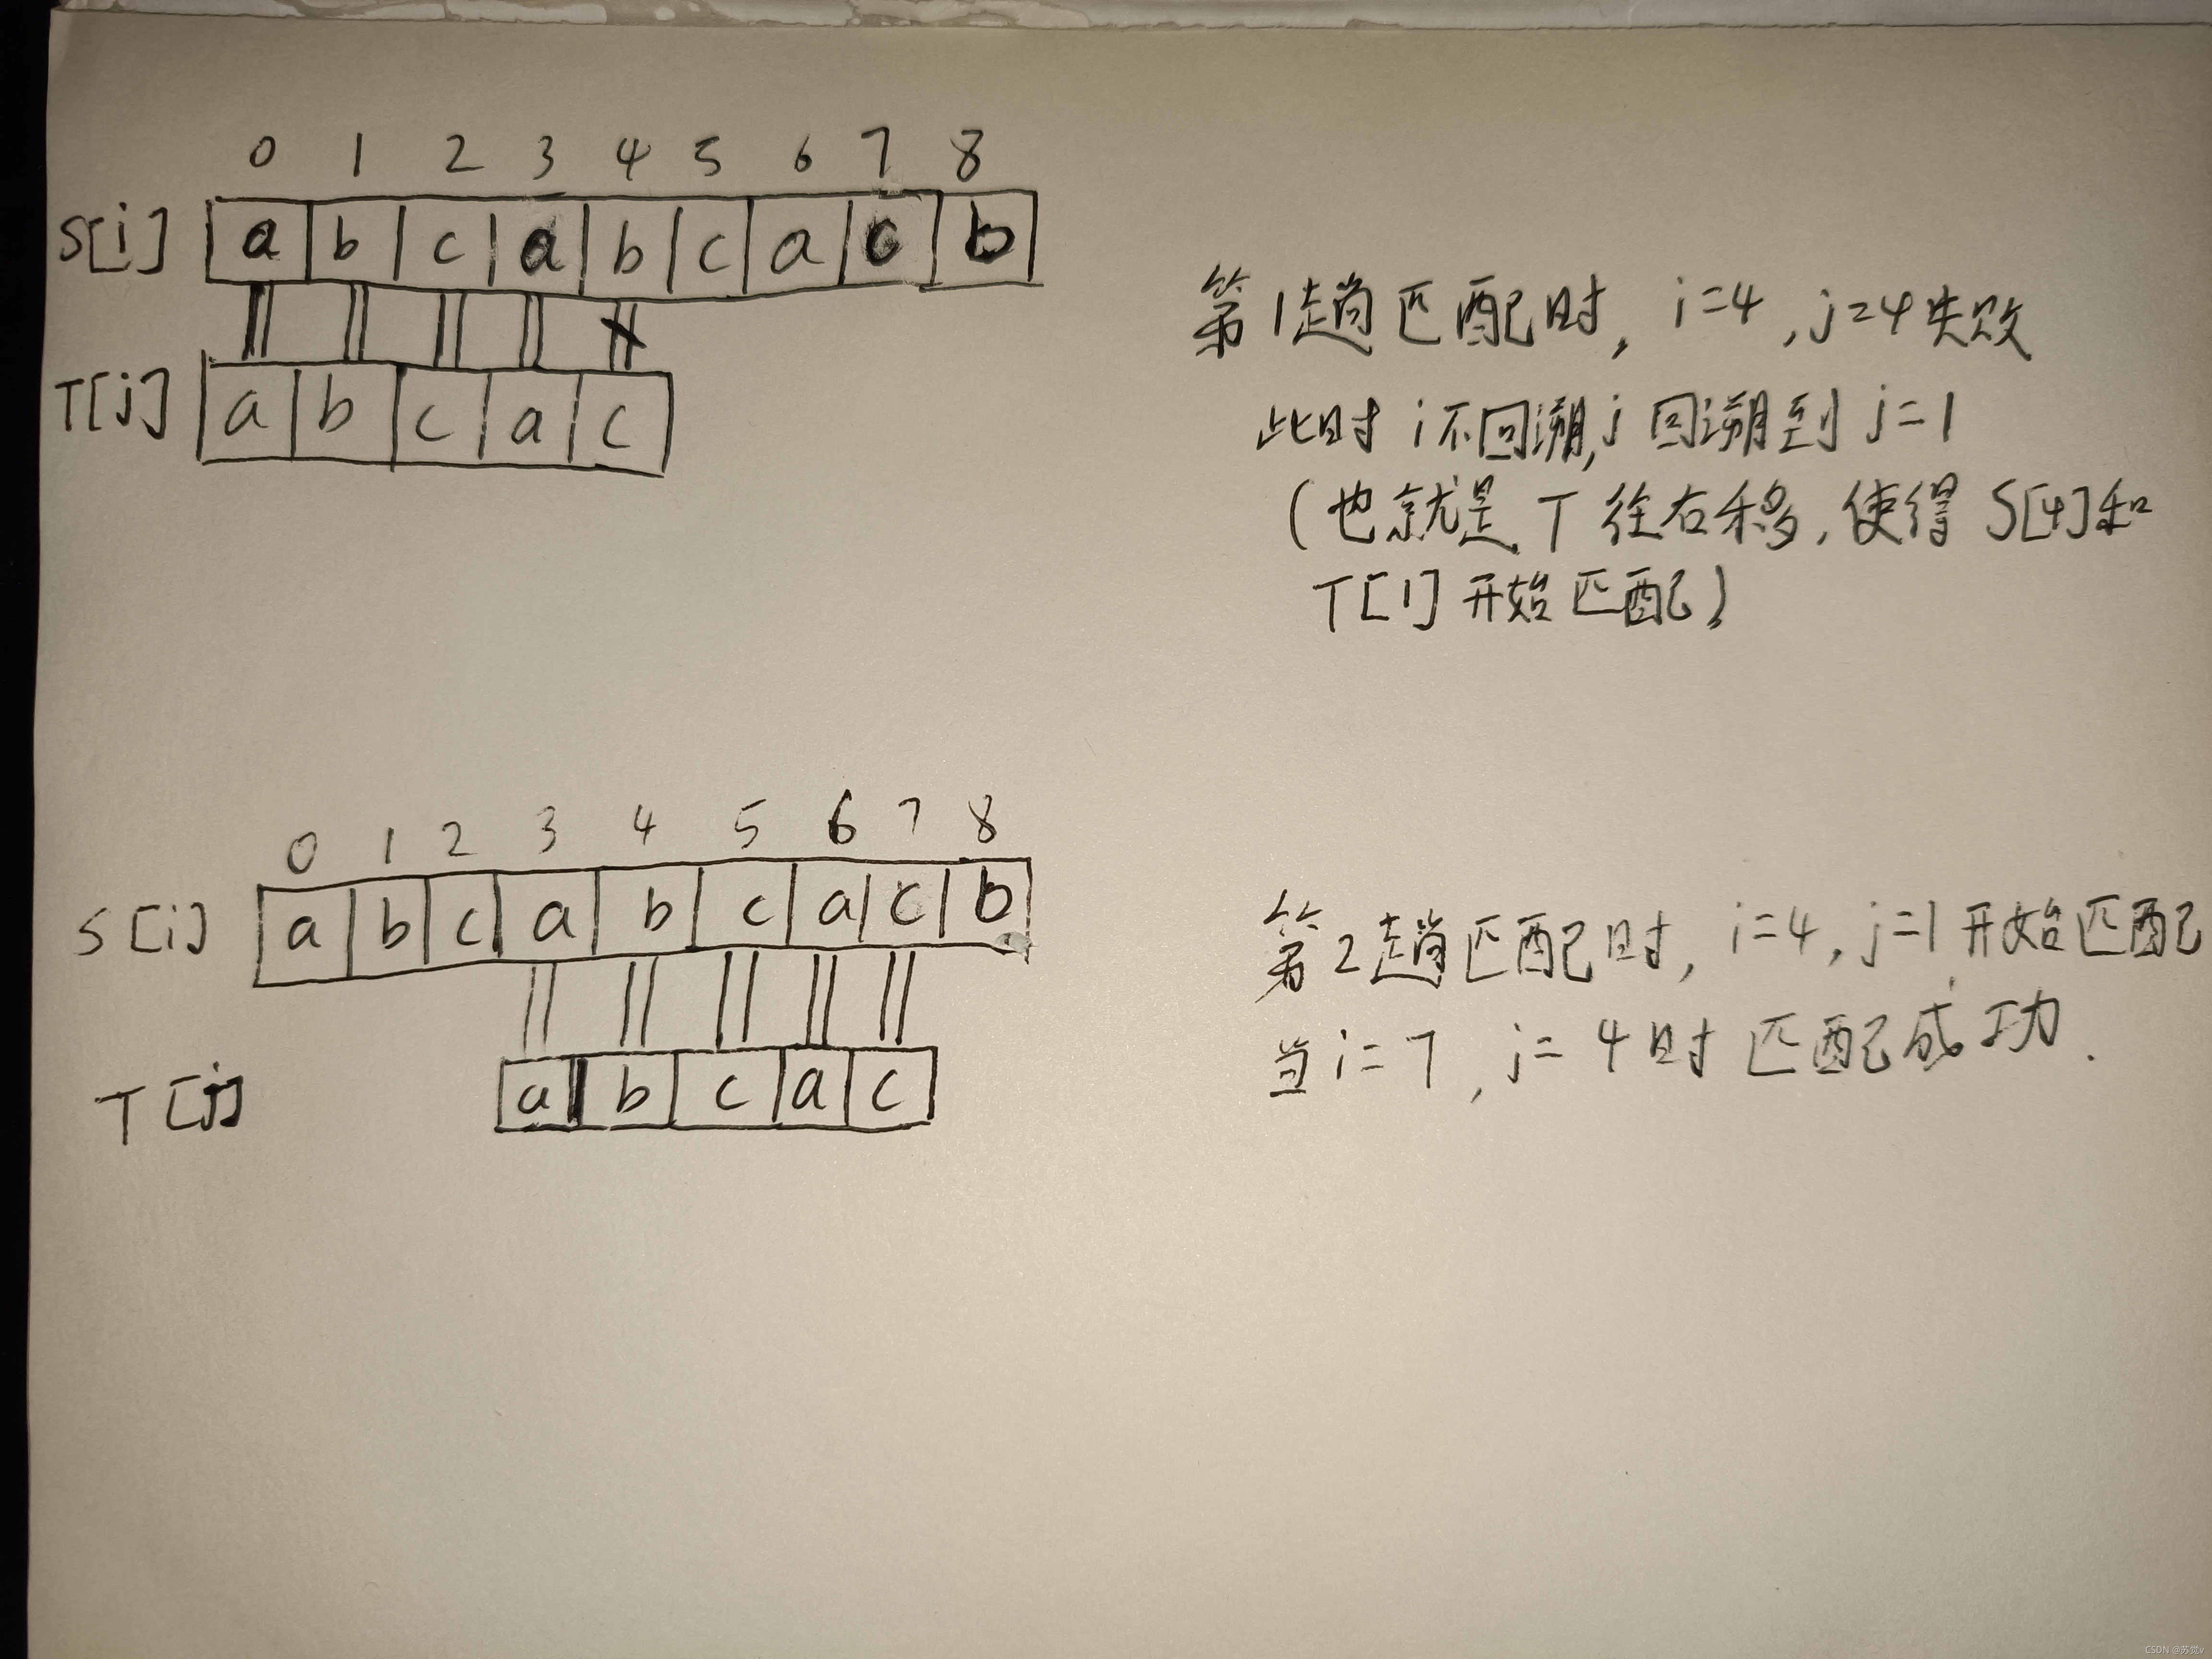 0 1 2 3 4 5 6 7 8
S[i] a b c a b c a c b
T[j] a b c a c
第1趟匹配时，i=4，j=4失败
此时i不回溯，j回溯到j=1
（也就是T往右移，使得S[4]和
T[1]开始匹配）
0 1 2 3 4 5 6 7 8
S[i] a b c a b c a c b
T[j] a b c a c
第2趟匹配时，i=4，j=1开始匹配
当i=7，j=4时匹配成功.